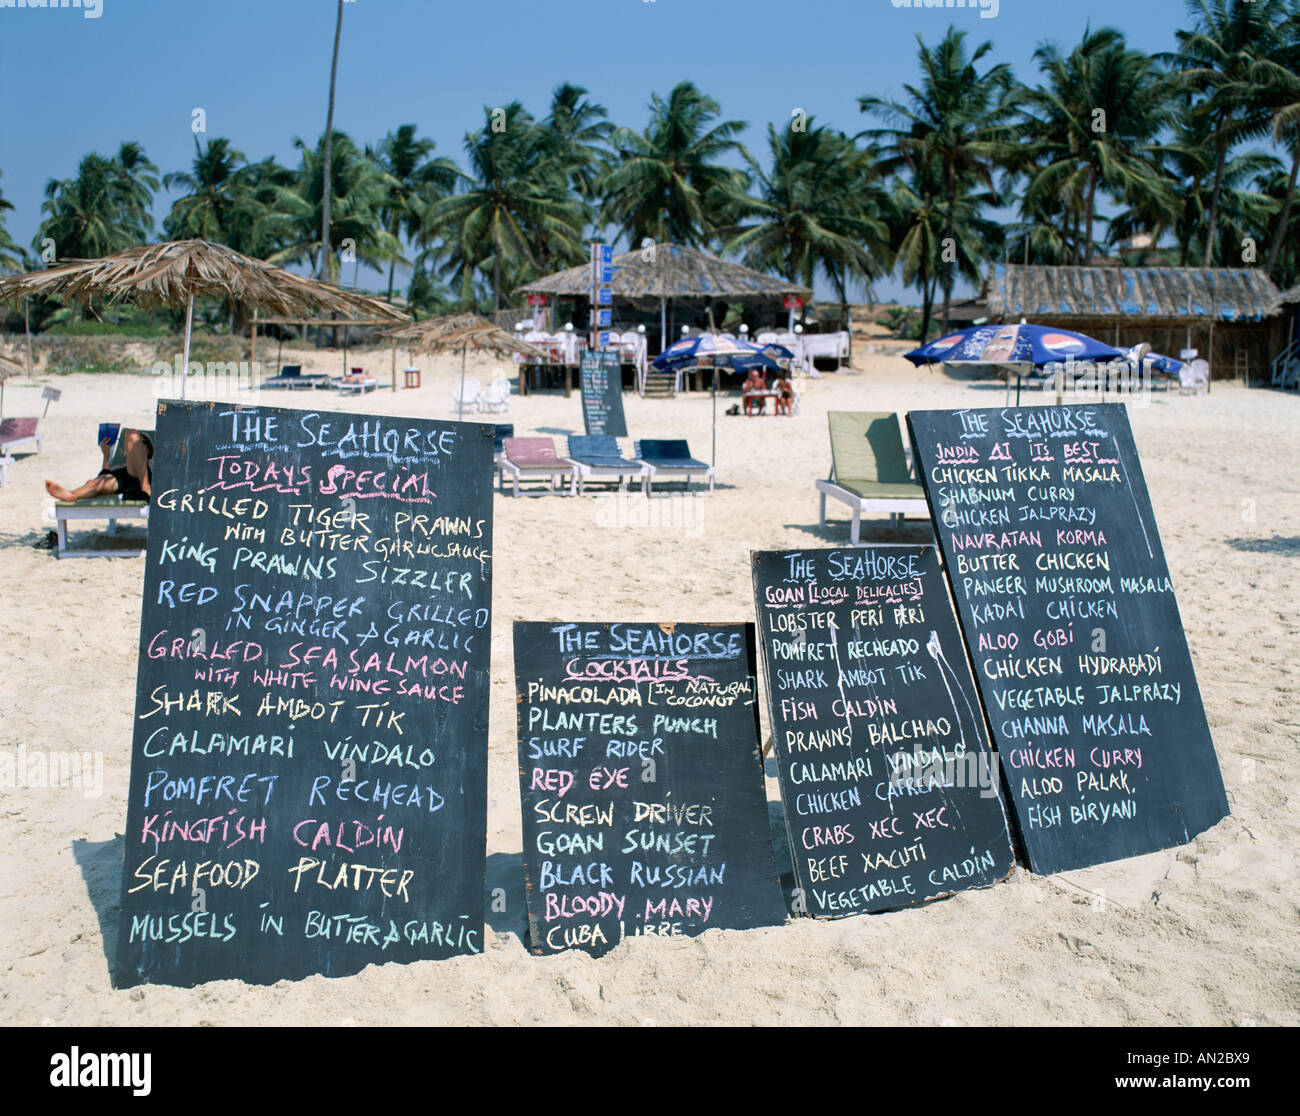 THE SEAHORSE
TODAYS SPECIAL
GRILLED TIGER PRAWNS
WITH BUTTER GARLIC SAUCE
KING PRAWNS SIZZLER
RED SNAPPER GRILLED
IN GINGER & GARLIC
GRILLED SEA SALMON
WITH WHITE WINE SAUCE
SHARK AMBOT TIK
CALAMARI VINDALO
POMFRET RECHEAD
KINGFISH CALDIN
SEAFOOD PLATTER
MUSSELS IN BUTTER & GARLIC
THE SEAHORSE
COCKTAILS
PINACOLADA [IN NATURAL
COCONUT]
PLANTERS PUNCH
SURF RIDER
RED EYE
SCREW DRIVER
GOAN SUNSET
BLACK RUSSIAN
BLOODY MARY
CUBA LIBRE
THE SEAHORSE
GOAN [LOCAL DELICACIES]
LOBSTER PERI PERI
POMFRET RECHEADO
SHARK AMBOT TIK
FISH CALDIN
PRAWNS BALCHAO
CALAMARI VINDALO
CHICKEN CAFREAL
CRABS XEC XEC
BEEF XACUTI
VEGETABLE CALDIN
THE SEAHORSE
INDIA AT ITS BEST
CHICKEN TIKKA MASALA
SHABNUM CURRY
CHICKEN JALPRAZY
NAVRATAN KORMA
BUTTER CHICKEN
PANEER MUSHROOM MASALA
KADAI CHICKEN
ALOO GOBI
CHICKEN HYDRABADI
VEGETABLE JALPRAZY
CHANNA MASALA
CHICKEN CURRY
ALOO PALAK
FISH BIRYANI
alamy
Image ID: AN2BX9
www.alamy.com